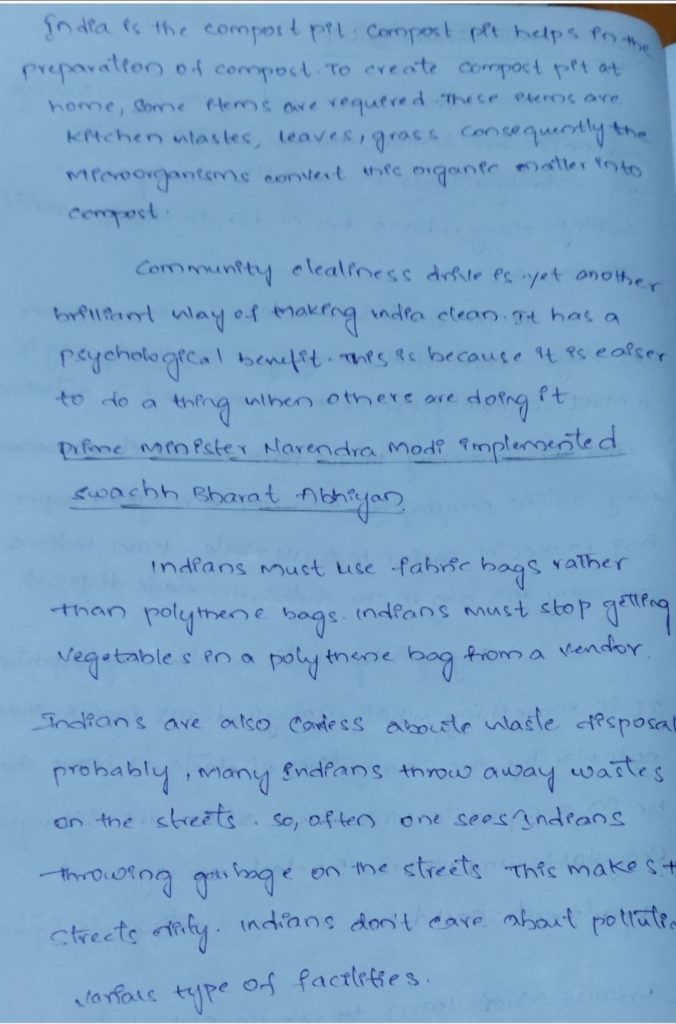 India is the compost pit. compost pit helps in the
preparation of compost. To create compost pit at
home, some items are required. These items are
kitchen wastes, leaves, grass. consequently the
microorganisms convert this organic matter into
compost.
Community clealiness drive is yet another
brilliant way of making india clean. It has a
psychological benefit. This is because it is easiser
to do a thing when others are doing it
Prime Minister Narendra Modi implemented
swachh Bharat Abhiyan.
Indians must use fabric bags rather
than polythene bags. indians must stop getting
Vegetables in a polythene bag from a vendor.
Indians are also Carless aboute waste disposal
probably, many indians throw away wastes
on the streets. so, often one sees indeans
throwing garbage on the streets This makes t
streets dirty. indians don't care about pollutio
type of facilities.